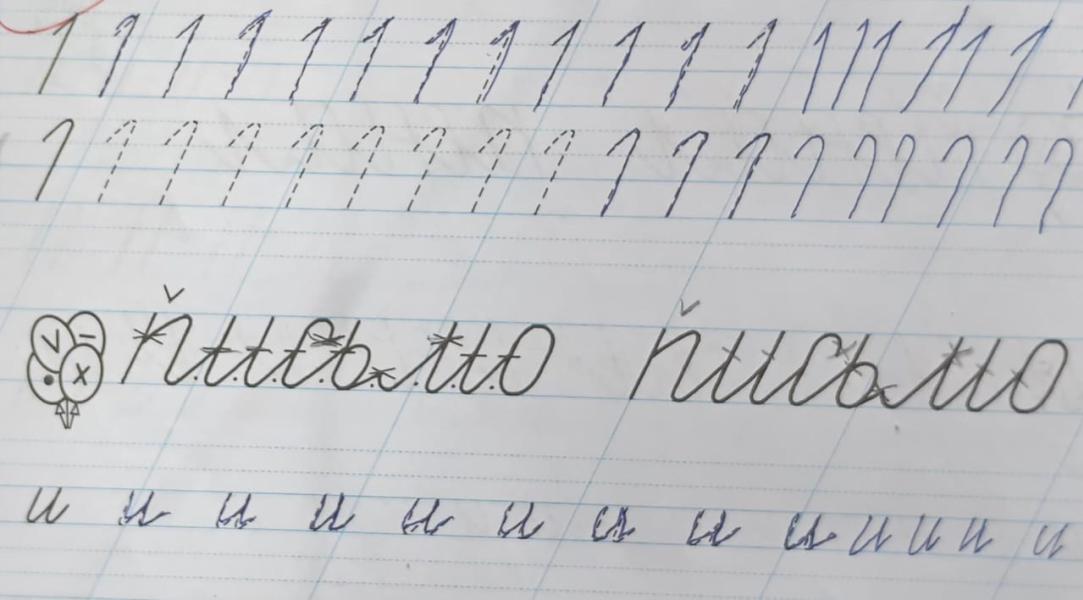 1 1 1 1 1 1 1 1 1 1 1 1 1 1 1 1 1 1
1 1 1 1 1 1 1 1 1 1 1 1 1 1 1 1 1 1
письмо письмо
и и и и и и и и и и и и и